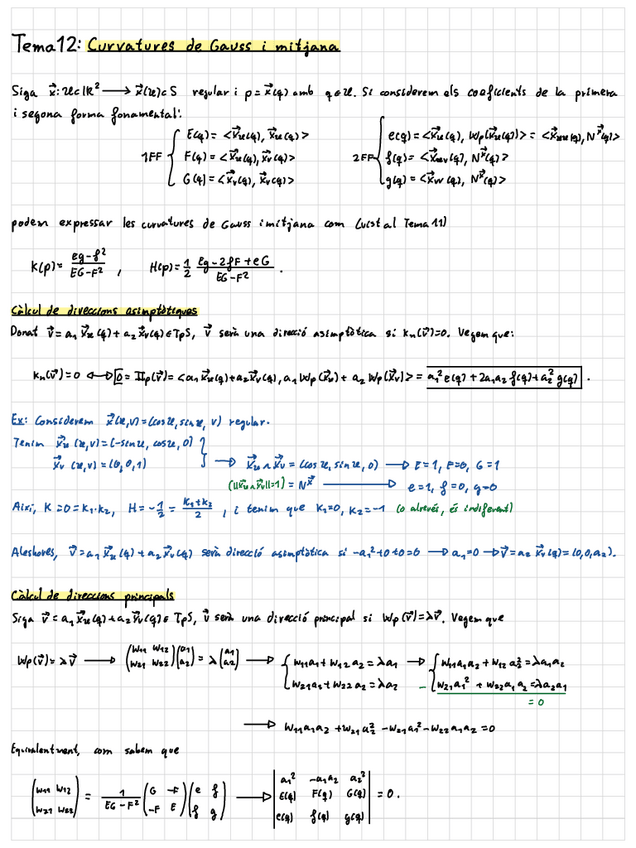 Tema 12: Curvatures de Gauss i mitjana
Siga x⃗: U⊂ℝ² ⟶ x⃗(U)⊂S regular i p = x⃗(q) amb q∈U. Si considerem els coeficients de la primera
i segona forma fonamental:
1FF { E(q) = <x⃗u(q), x⃗u(q)>
F(q) = <x⃗u(q), x⃗v(q)>
G(q) = <x⃗v(q), x⃗v(q)>
2FF { e(q) = <x⃗u(q), Wp(x⃗u(q))> = <x⃗uu(q), N^x⃗(q)>
f(q) = <x⃗uv(q), N^x⃗(q)>
g(q) = <x⃗vv(q), N^x⃗(q)>
podem expressar les curvatures de Gauss i mitjana com (vist al Tema 11)
K(p) = (eg-f²)/(EG-F²) , H(p) = 1/2 (Eg-2fF+eG)/(EG-F²) .
Càlcul de direccions asimptòtiques
Donat v⃗ = a₁x⃗u(q) + a₂x⃗v(q) ∈ TpS, v⃗ serà una direcció asimptòtica si kn(v⃗)=0. Vegem que:
kn(v⃗) = 0 ⟷ 0 = IIp(v⃗) = <a₁x⃗u(q)+a₂x⃗v(q), a₁Wp(x⃗u) + a₂Wp(x⃗v)> = a₁²e(q) + 2a₁a₂f(q) + a₂²g(q) .
Ex: Considerem x⃗(u,v) = (cosu, sinu, v) regular.
Tenim x⃗u(u,v) = (-sinu, cosu, 0)
x⃗v(u,v) = (0,0,1) } ⟶ x⃗u∧x⃗v = (cosu, sinu, 0) ⟶ E=1, F=0, G=1
(||x⃗u∧x⃗v||=1) = N^x⃗ ⟶ e=1, f=0, g=0
Així, K=0=k₁·k₂, H = -1/2 = (k₁+k₂)/2 , i tenim que k₁=0, k₂=-1 (o al revés, és indiferent)
Aleshores, v⃗ = a₁x⃗u(q) + a₂x⃗v(q) serà direcció asimptòtica si -a₁²+0+0=0 ⟶ a₁=0 ⟶ v⃗ = a₂x⃗v(q) = (0,0,a₂).
Càlcul de direccions principals
Siga v⃗ = a₁x⃗u(q) + a₂x⃗v(q) ∈ TpS, v⃗ serà una direcció principal si Wp(v⃗) = λv⃗. Vegem que
Wp(v⃗) = λv⃗ ⟶ (w₁₁ w₁₂; w₂₁ w₂₂)(a₁; a₂) = λ(a₁; a₂) ⟶ { w₁₁a₁ + w₁₂a₂ = λa₁ ⟶ { w₁₁a₁a₂ + w₁₂a₂² = λa₁a₂
w₂₁a₁ + w₂₂a₂ = λa₂ - w₂₁a₁² + w₂₂a₁a₂ = λa₂a₁
= 0
⟶ w₁₁a₁a₂ + w₂₁a₂² - w₂₁a₁² - w₂₂a₁a₂ = 0
Equivalentment, com sabem que
(w₁₁ w₁₂; w₂₁ w₂₂) = 1/(EG-F²) (G -F; -F E)(e f; f g) ⟶ |a₂² -a₁a₂ a₁²; E(q) F(q) G(q); e(q) f(q) g(q)| = 0.